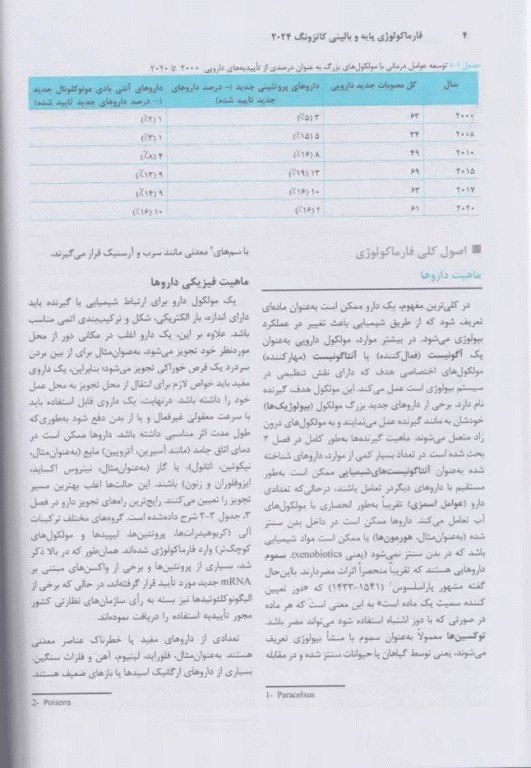 ۴ فارماکولوژی پایه و بالینی کاتزونگ ۲۰۲۴
جدول ۱-۱ توسعه عوامل درمانی با مولکول‌های بزرگ به عنوان درصدی از تأییدیه‌های دارویی ۲۰۰۰ تا ۲۰۲۰.
سال کل مصوبات جدید دارویی داروهای پروتئینی جدید (– درصد داروهای داروهای آنتی بادی مونوکلونال جدید
جدید تایید شده) (– درصد داروهای جدید تایید شده)
۲۰۰۰ ۶۳ ۳ (۵٪) ۱ (۲٪)
۲۰۰۸ ۳۴ ۵ (۱۵٪) ۱ (۳٪)
۲۰۱۰ ۴۹ ۸ (۱۶٪) ۴ (۸٪)
۲۰۱۵ ۶۹ ۱۳ (۱۹٪) ۹ (۱۳٪)
۲۰۱۷ ۶۳ ۱۰ (۱۶٪) ۹ (۱۴٪)
۲۰۲۰ ۶۱ ۲ (۱۶٪) ۱۰ (۱۶٪)
اصول کلی فارماکولوژی
ماهیت داروها
در کلی‌ترین مفهوم، یک دارو ممکن است به‌عنوان ماده‌ای
تعریف شود که از طریق شیمیایی باعث تغییر در عملکرد
بیولوژی می‌شود. در بیشتر موارد، مولکول دارویی به‌عنوان
یک آگونیست (فعال‌کننده) یا آنتاگونیست (مهارکننده)
مولکول‌های اختصاصی هدف که دارای نقش تنظیمی در
سیستم بیولوژی است عمل می‌کند. این مولکول هدف، گیرنده
نام دارد. برخی از داروهای جدید بزرگ مولکول (بیولوژیک‌ها)
خودشان به مانند گیرنده عمل می‌نمایند و به مولکول‌های درون
زاد متصل می‌شوند. ماهیت گیرنده‌ها به‌طور کامل در فصل ۲
بحث شده است. در تعداد بسیار کمی از موارد، داروهای شناخته
شده به‌عنوان آنتاگونیست‌های‌شیمیایی ممکن است به‌طور
مستقیم با داروهای دیگردر تعامل باشند، درحالی‌که تعدادی
دارو (عوامل اسمزی) تقریباً به‌طور انحصاری با مولکول‌های
آب تعامل می‌کند. داروها ممکن است در داخل بدن سنتز
شده (به‌عنوان‌مثال، هورمون‌ها) یا ممکن است مواد شیمیایی
باشد که در بدن سنتز نمی‌شود (یعنی xenobiotics). سموم
داروهایی هستند که تقریباً منحصراً اثرات مضردارند. بااین‌حال
گفته مشهور پاراسلسوس۱ (۱۵۴۱–۱۴۳۳) که «دوز تعیین
کننده سمیت یک ماده است» به این معنی است که هر ماده
در صورتی که با دوز اشتباه استفاده شود می‌تواند مضر باشد.
توکسین‌ها معمولاً به‌عنوان سموم با منشأ بیولوژی تعریف
می‌شوند، یعنی توسط گیاهان یا حیوانات سنتز شده و در مقابله
1- Paracelsus
با سم‌های۲ معدنی مانند سرب و آرسنیک قرار می‌گیرند.
ماهیت فیزیکی داروها
یک مولکول دارو برای ارتباط شیمیایی با گیرنده باید
دارای اندازه، بار الکتریکی، شکل و ترکیب‌بندی اتمی مناسب
باشد. علاوه بر این، یک دارو اغلب در مکانی دور از محل
موردنظر خود تجویز می‌شود، به‌عنوان‌مثال برای از بین بردن
سردرد یک قرص خوراکی تجویز می‌شود؛ بنابراین، یک داروی
مفید باید خواص لازم برای انتقال از محل تجویز به محل عمل
خود را داشته باشد. درنهایت، یک داروی قابل استفاده باید
با سرعت معقولی غیرفعال و یا از بدن دفع شود به‌طوری‌که
طول مدت اثر مناسبی داشته باشد. داروها ممکن است در
دمای اتاق جامد (مانند آسپرین، آتروپین) مایع (به‌عنوان‌مثال،
نیکوتین، اتانول)، یا گاز (به‌عنوان‌مثال، نیتروس اکساید،
ایزوفلوران و زنون) باشند. این حالت‌ها اغلب بهترین مسیر
تجویز را تعیین می‌کنند. رایج‌ترین راه‌های تجویز دارو در فصل
۳، جدول ۳-۳ شرح داده‌شده است. گروه‌های مختلف ترکیبات
آلی (کربوهیدرات‌ها، پروتئین‌ها، لیپیدها و مولکول‌های
کوچک‌تر) وارد فارماکولوژی شده‌اند. همان‌طور که در بالا ذکر
شد، بسیاری از پروتئین‌ها و برخی از واکسن‌های مبتنی بر
mRNA جدید مورد تأیید قرار گرفته‌اند، در حالی که برخی از
الیگونوکلئوتیدها نیز بسته به رأی سازمان‌های نظارتی کشور
مجور تأییدیه استفاده را دریافت نموده‌اند.
تعدادی از داروهای مفید یا خطرناک عناصر معدنی
هستند. به‌عنوان‌مثال، فلوراید، لیتیوم، آهن و فلزات سنگین.
بسیاری از داروهای ارگانیک اسیدها یا بازهای ضعیف هستند.
2- Poisons